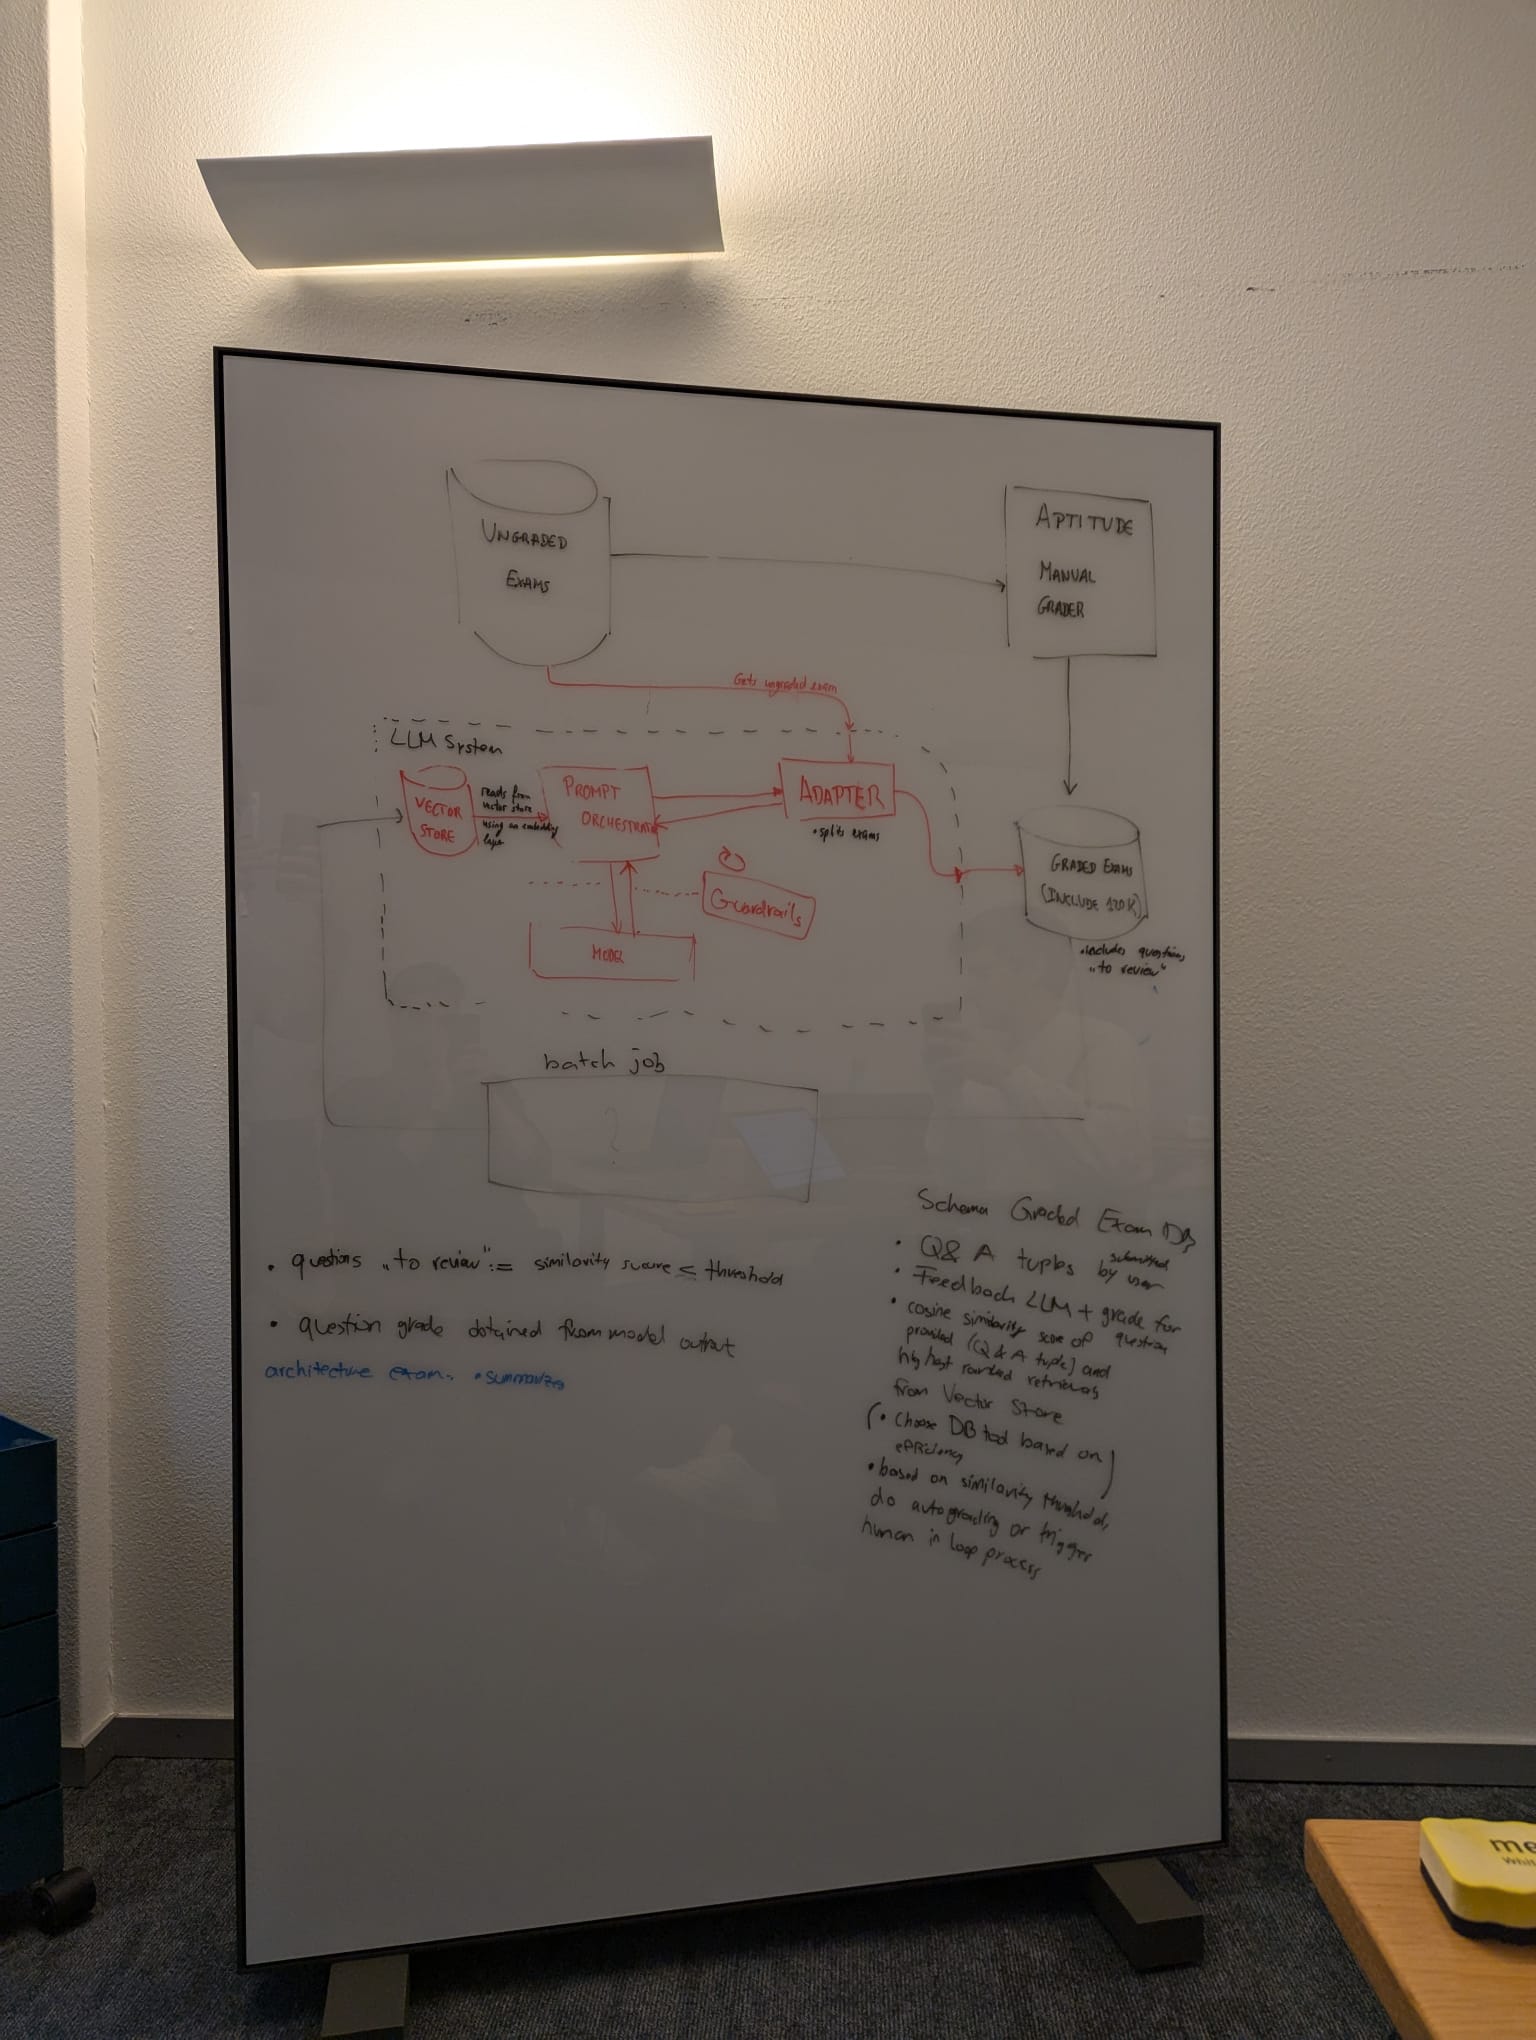 UNGRADED
EXAMS
APTITUDE
MANUAL
GRADER
Gets ungraded exam
LLM System
VECTOR
STORE
reads from
vector store
using an embedding
layer
PROMPT
ORCHESTRATOR
ADAPTER
•splits exams
Guardrails
MODEL
GRADED EXAMS
(INCLUDE 120K)
•includes questions
"to review"
batch job
?
• questions "to review" := similarity score ≤ threshold
• question grade obtained from model output
architecture exam •summarize
Schema Graded Exam DB
• Q&A tuples submitted by user
• Feedback LLM + grade for
• cosine similarity score of question
provided (Q&A tuple) and
highest ranked retrievals
from Vector Store
(• Choose DB tool based on
efficiency )
• based on similarity threshold,
do autograding or trigger
human in loop process
me
Whit